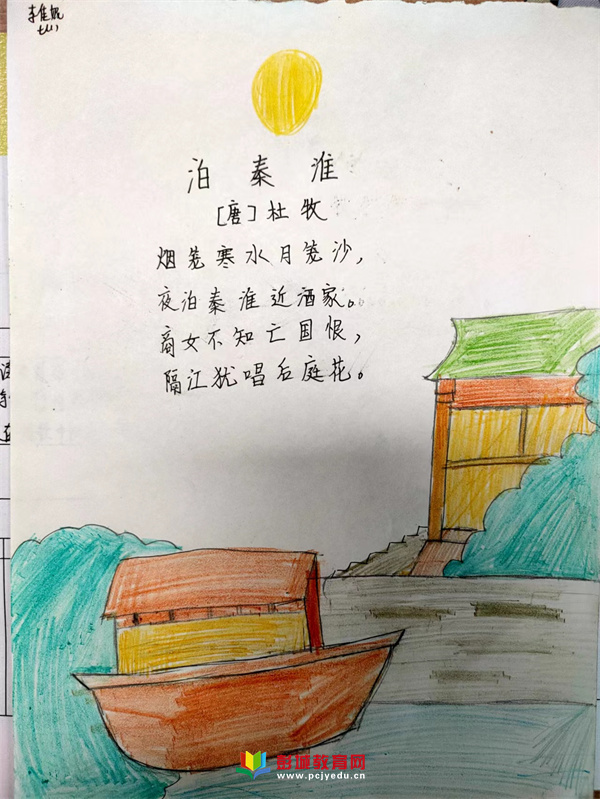 泊秦淮
[唐]杜牧
烟笼寒水月笼沙,
夜泊秦淮近酒家。
商女不知亡国恨,
隔江犹唱后庭花。
彭城教育网
www.pcjyedu.cn